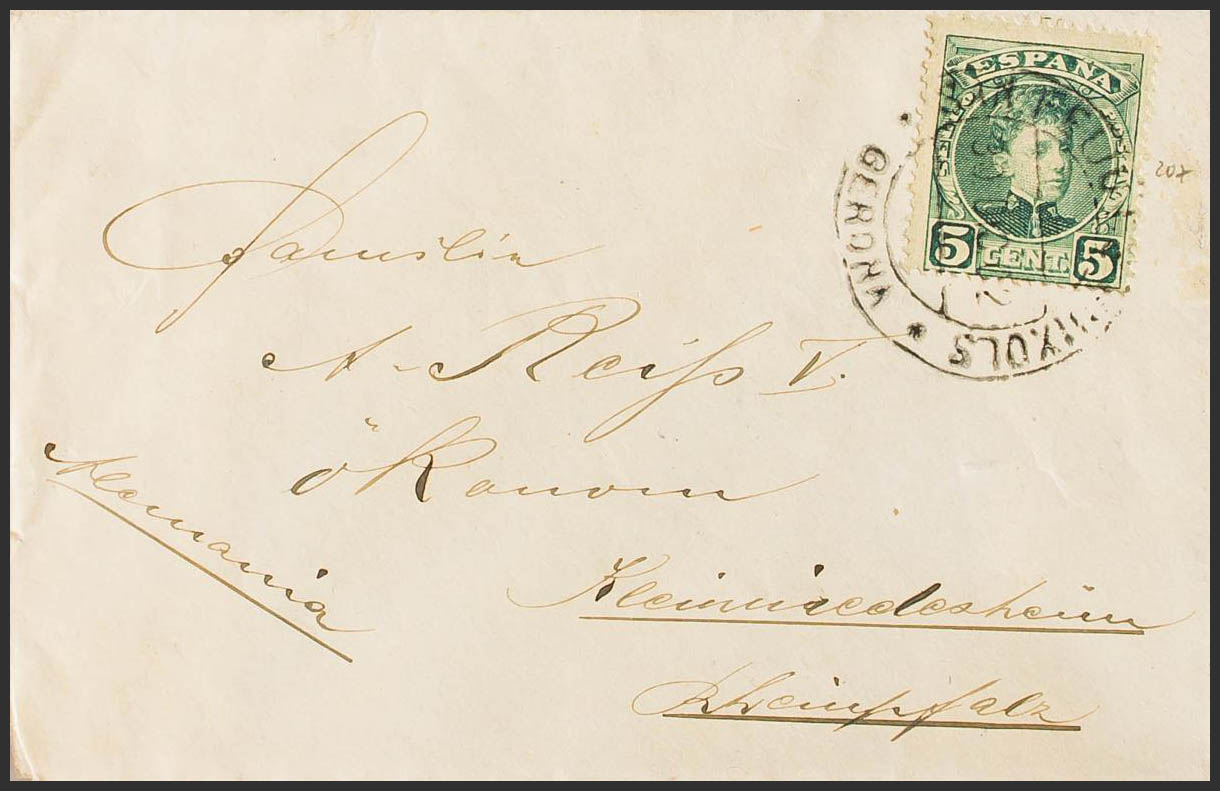 ESPAÑA
5 CENT. 5
GERONA
207
Familia
A. Reiß V.
ökonom
Alemania
Kleinniedesheim
Rheinpfalz